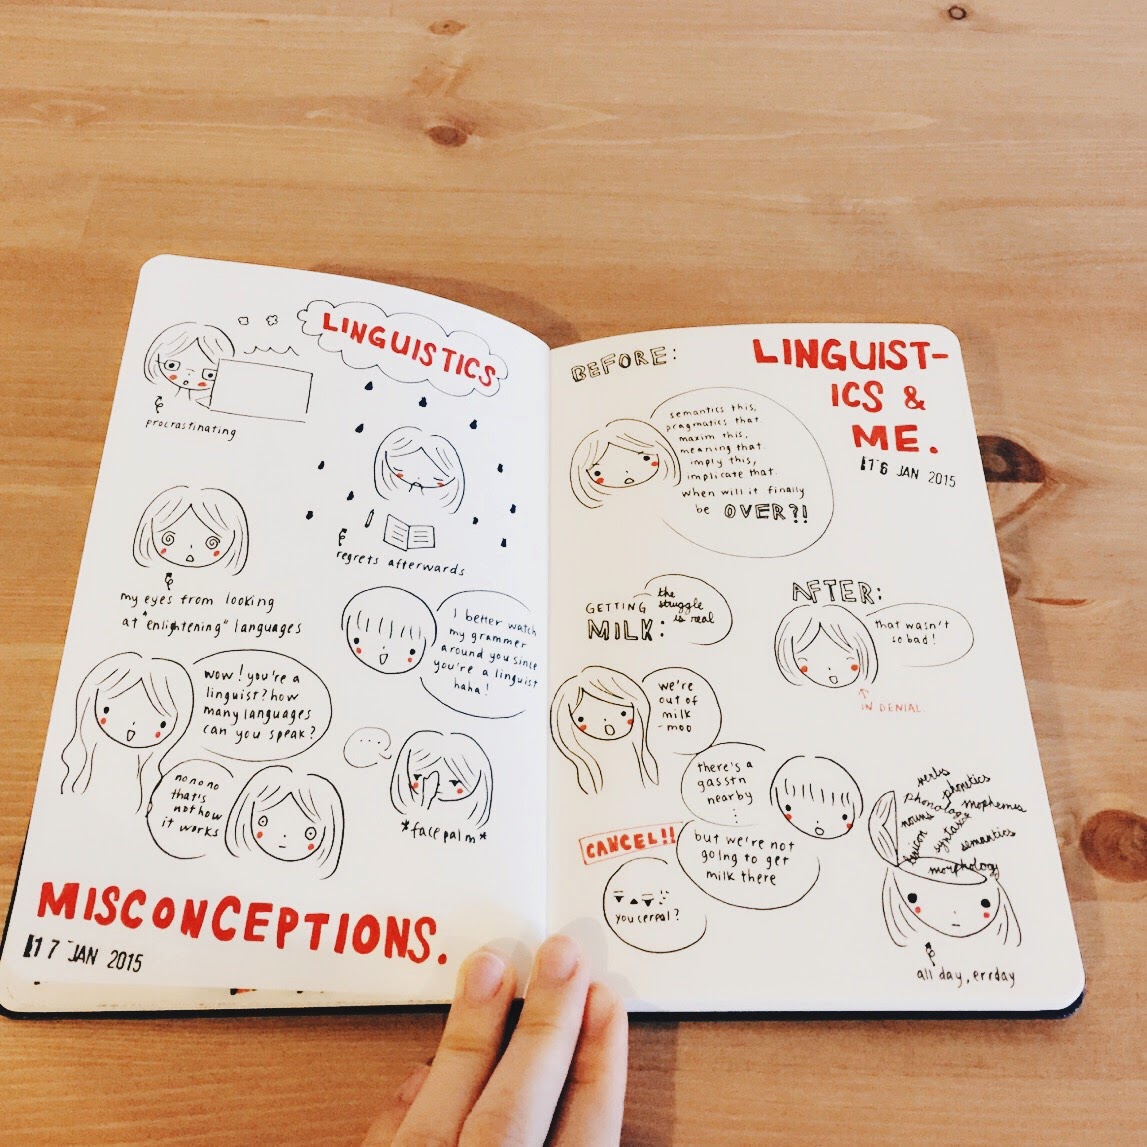 LINGUISTICS
procrastinating
regrets afterwards
my eyes from looking
at "enlightening" languages
I better watch
my grammer
around you since
you're a linguist
haha!
wow! you're a
linguist? how
many languages
can you speak?
no no no
that's
not how
it works
...
*facepalm*
MISCONCEPTIONS.
17 JAN 2015
BEFORE:
LINGUIST-
ICS &
ME.
16 JAN 2015
semantics this,
pragmatics that.
maxim this,
meaning that.
imply this,
implicate that.
when will it finally
be OVER?!
GETTING
MILK:
the
struggle
is real
AFTER:
that wasn't
so bad!
IN DENIAL.
we're
out of
milk
-moo
there's a
gasstn
nearby
...
but we're not
going to get
milk there
CANCEL!!
you cereal?
verbs
phonetics
mophemes
nouns
syntax
lexicon
semantics
morphology
all day, errday